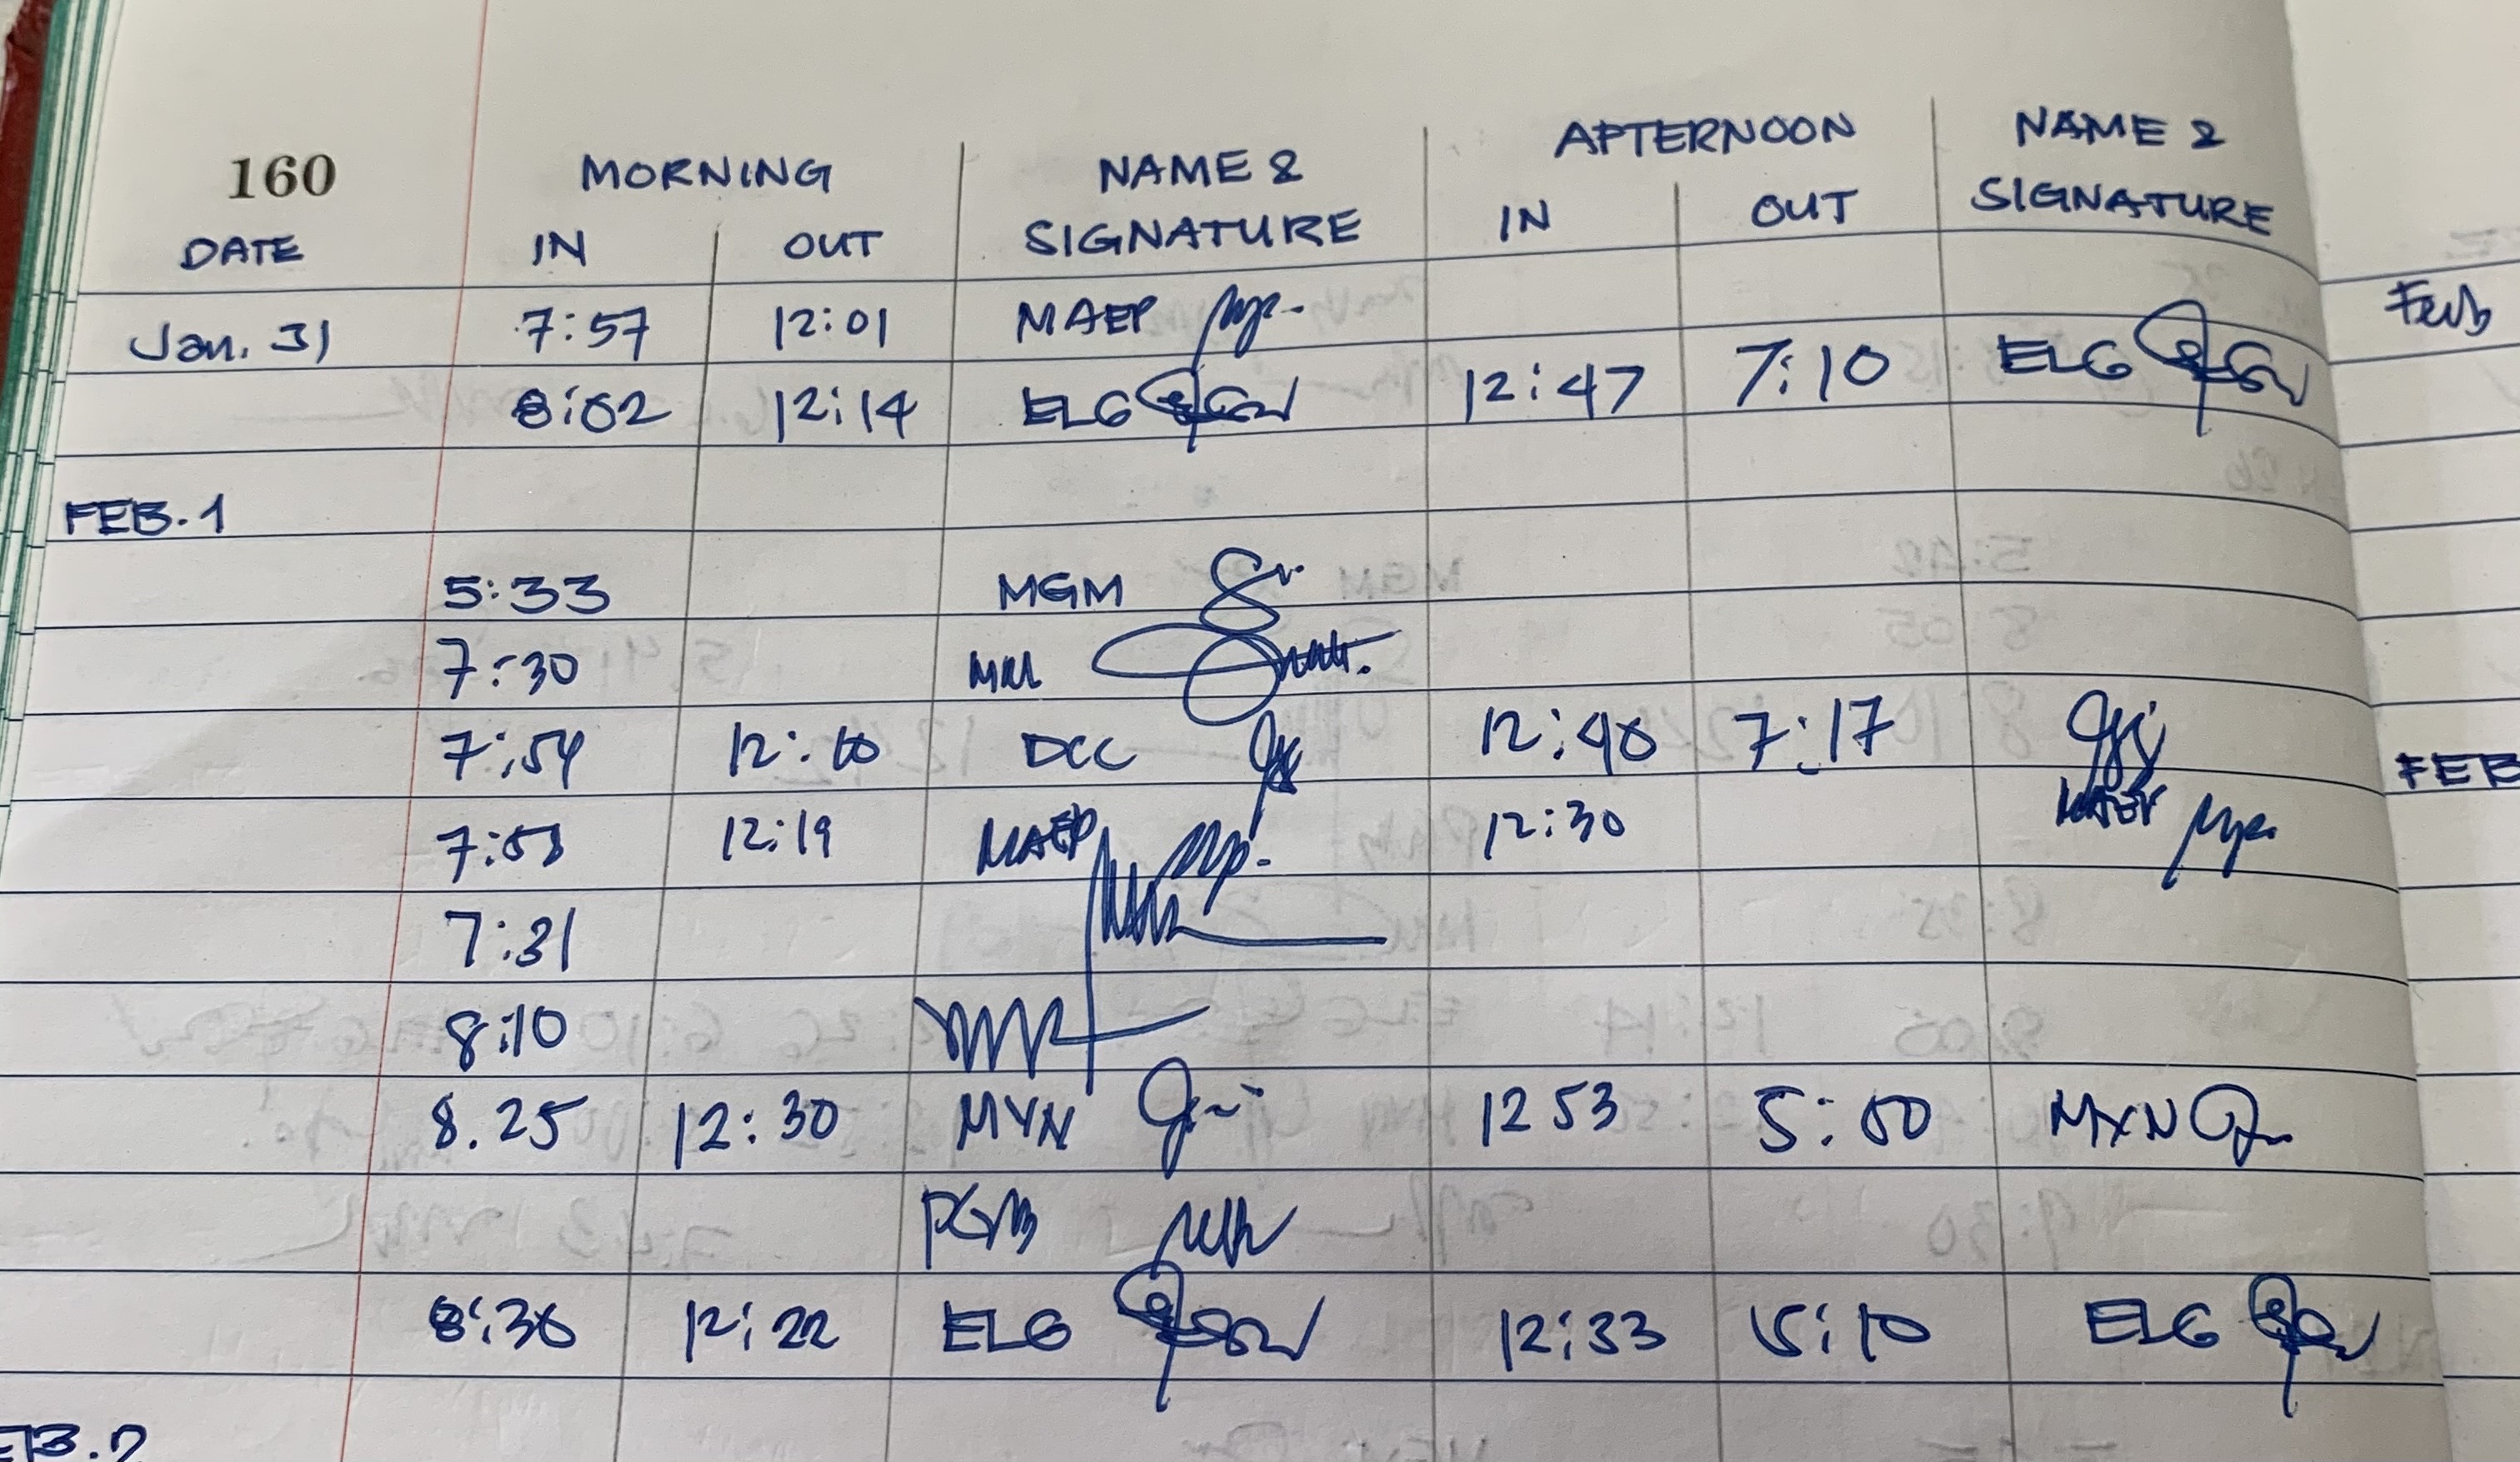 160 MORNING NAME & AFTERNOON NAME &
DATE IN OUT SIGNATURE IN OUT SIGNATURE
Jan. 31 7:57 12:01 MAEP
8:02 12:14 ELG 12:47 7:10 ELG
Feb
FEB. 1
5:33 MGM
7:30
7:54 12:10 DCC 12:40 7:17
FEB
7:53 12:19 MAEP 12:30 MAEP
7:31
8:10
8.25 12:30 MYN 12 53 5:00 MXN
PGM
8:30 12:22 ELG 12:33 5:10 ELG
EB. 2